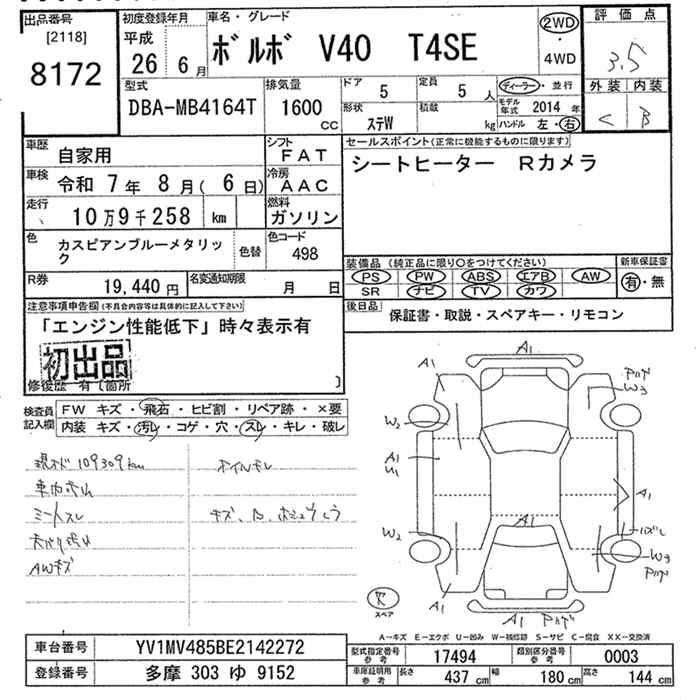 出品番号 [2118] 8172
初度登録年月 平成 26年 6月
車名・グレード ボルボ V40 T4SE
2WD・4WD
評価点 3.5
外装 C 内装 B
型式 DBA-MB4164T
排気量 1600 CC
ドア 5
定員 5 人
形状 ステW
積載 kg
ディーラー・並行
モデル年式 2014 年
ハンドル 左・右
車歴 自家用
シフト FAT
車検 令和 7年 8月( 6日)
冷房 AAC
走行 10万9千258 km
燃料 ガソリン
色 カスピアンブルーメタリック
色替
色コード 498
R券 19,440 円
名変通知期限 月 日
セールスポイント(正常に機能するものに限ります)
シートヒーター Rカメラ
装備品 (純正品に限り○をつけてください)
PS PW ABS エアB AW
SR ナビ TV カワ
新車保証書 有・無
後日品 保証書・取説・スペアキー・リモコン
注意事項申告欄(不具合内容等は具体的に記入して下さい)
「エンジン性能低下」時々表示有
初出品
修復歴 有〔箇所 〕
検査員記入欄
FW キズ・飛石・ヒビ割・リペア跡・×要
内装 キズ・汚レ・コゲ・穴・スレ・キレ・破レ
109309km
シートスレ
AWキズ
A1
A1
W3
W2
A1
U1
A1
A1
W2
W3
A1
A1
スペア
A-キズ E-エクボ U-凹み W-補修跡 S-サビ C-腐食 XX-交換済
車台番号 YV1MV485BE2142272
登録番号 多摩 303 ゆ 9152
型式指定番号 参考 17494
類別区分番号 参考 0003
車庫証明用 参考 長さ 437 cm 幅 180 cm 高さ 144 cm